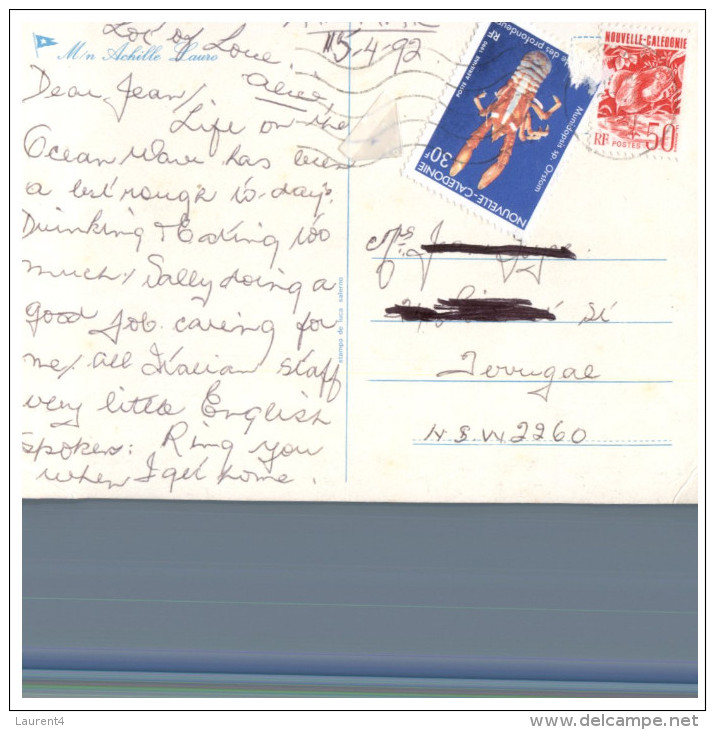 Lot of Love
Alice
5-4-92
M/n Achille Lauro
Dear Jean,
Life on the
Ocean Wave has been
a bit rough to-day.
Drinking & Eating too
much, Sally doing a
good job caring for
me, all Italian staff
very little English
spoken: Ring you
when I get home.
stampa de luca salerno
POSTE AERIENNE 1990
des profondeurs
Mundopsis sp. Orstom
30F
NOUVELLE-CALEDONIE
RF
NOUVELLE-CALEDONIE
RF POSTES 50F
St
Terrugal
N.S.W 2260
Laurent4
delcampe.net